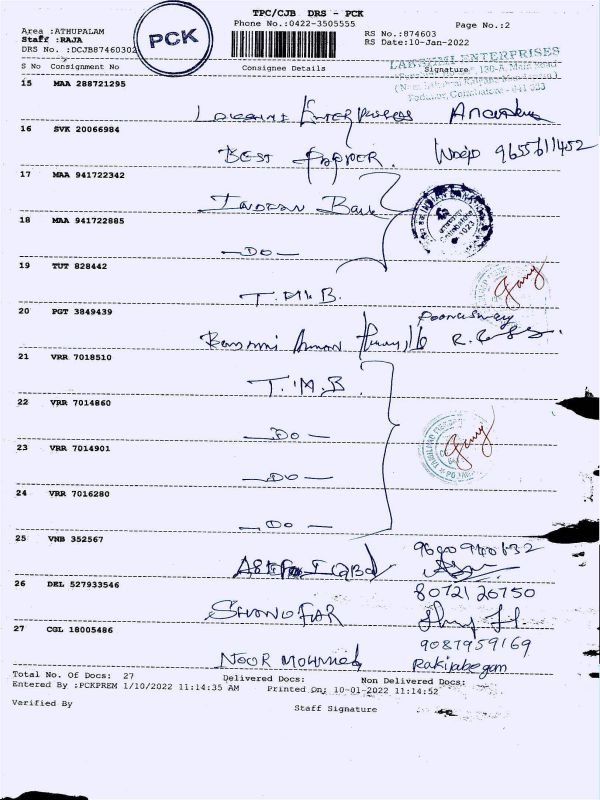 TPC/CJB DRS - PCK
Phone No.:0422-3505555
Page No.:2
Area :ATHUPALAM
Staff :RAJA
DRS No. :DCJB87460302
PCK
RS No.:874603
RS Date:10-Jan-2022
LAKSHMI ENTERPRISES
S No Consignment No Consignee Details Signature
15 MAA 288721295
Enterprises
16 SVK 20066984
BEST 9655611452
17 MAA 941722342
Indian Bank
18 MAA 941722885
-DO-
19 TUT 828442
T.M.B.
20 PGT 3849439
21 VRR 7018510
T.M.B
22 VRR 7014860
-DO-
23 VRR 7014901
-DO-
24 VRR 7016280
-DO-
25 VNB 352567
26 DEL 527933546
8072120750
SHANOFAR
27 CGL 18005486
9087959169
NOOR MOHMMED
Rakijabegam
Total No. Of Docs: 27 Delivered Docs: Non Delivered Docs:
Entered By :PCKPREM 1/10/2022 11:14:35 AM Printed On: 10-01-2022 11:14:52
Verified By Staff Signature